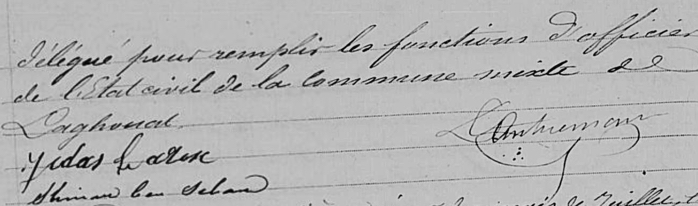 délégué pour remplir les fonctions d'officier
de l'Etat civil de la Commune mixte de
Laghouat.
Judas
ben
de Juillet